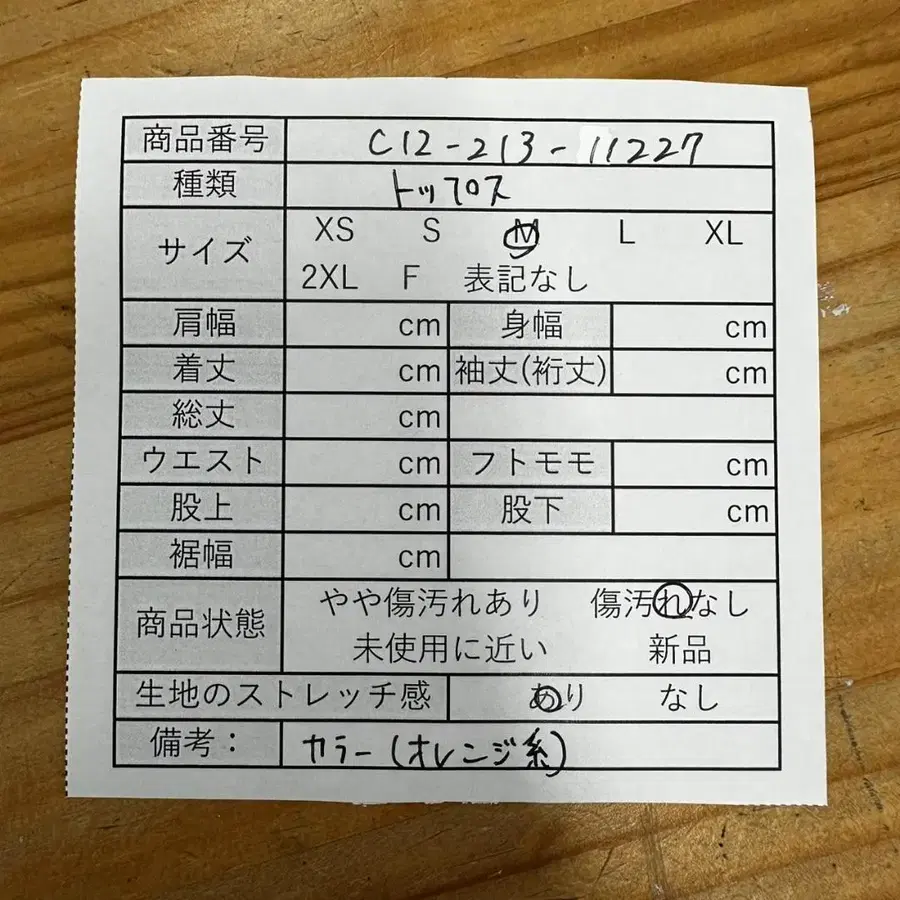 商品番号 C12-213-11227
種類 トップス
サイズ XS S M L XL
2XL F 表記なし
肩幅 cm 身幅 cm
着丈 cm 袖丈(裄丈) cm
総丈 cm
ウエスト cm フトモモ cm
股上 cm 股下 cm
裾幅 cm
商品状態 やや傷汚れあり 傷汚れなし
未使用に近い 新品
生地のストレッチ感 あり なし
備考： カラー(オレンジ系)